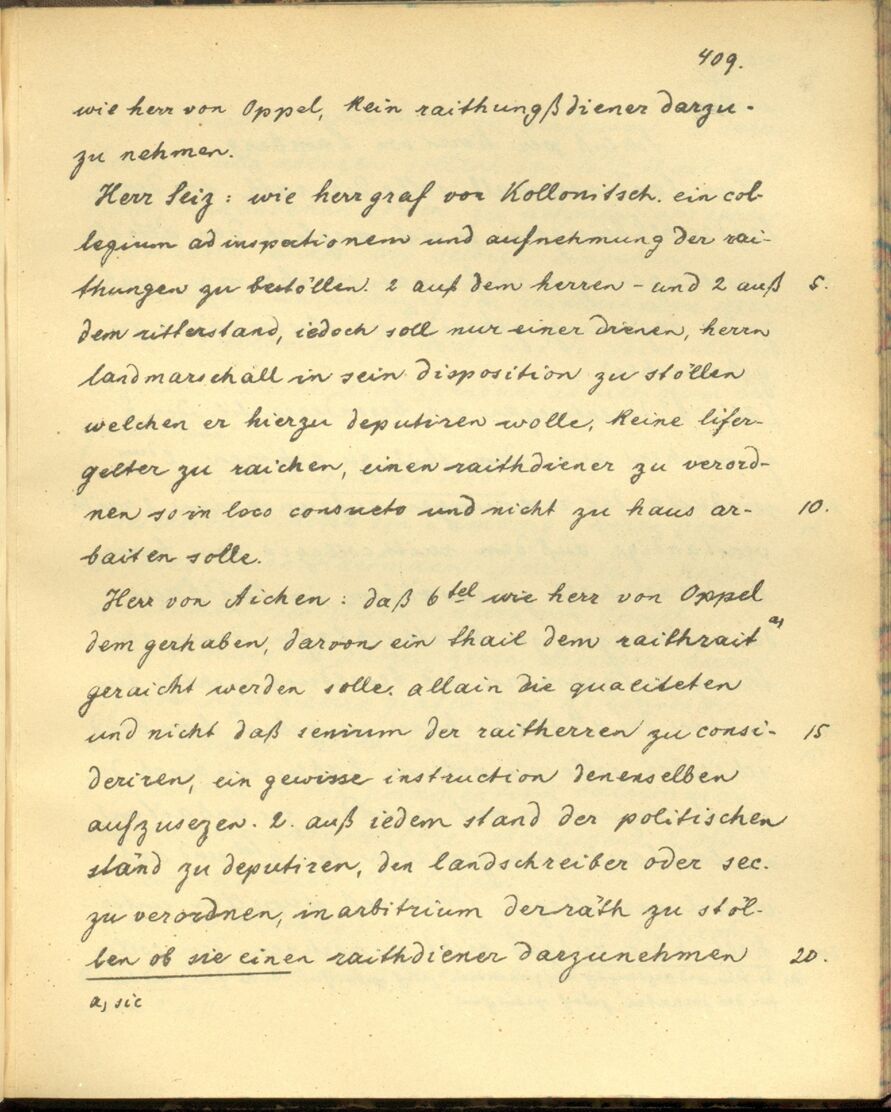 409.
wie herr von Oppel, kein raithungßdiener darzu-
zu nehmen.
Herr Seiz: wie herr graf von Kollonitsch. ein col-
legium ad inspectionem und aufnehmung der rai-
thungen zu bestöllen. 2 auß dem herren- und 2 auß 5.
dem ritterstand, iedoch soll nur einer dienen, herrn
landmarschall in sein disposition zu stöllen
welchen er hierzu deputiren wolle, keine lifer-
gelter zu raichen, einen raithdiener zu verord-
nen so in loco consueto und nicht zu haus ar- 10.
baiten solle.
Herr von Aichen: daß 6tel wie herr von Oppel
dem gerhaben, darvon ein thail dem raithrait a)
geraicht werden solle. allain die qualiteten
und nicht daß senium der raitherren zu consi- 15
deriren, ein gewisse instruction denenselben
aufzusezen. 2. auß iedem stand der politischen
ständ zu deputiren, den landschreiber oder sec.
zu verordnen, in arbitrium der räth zu stöl-
len ob sie einen raithdiener darzunehmen 20.
a) sic